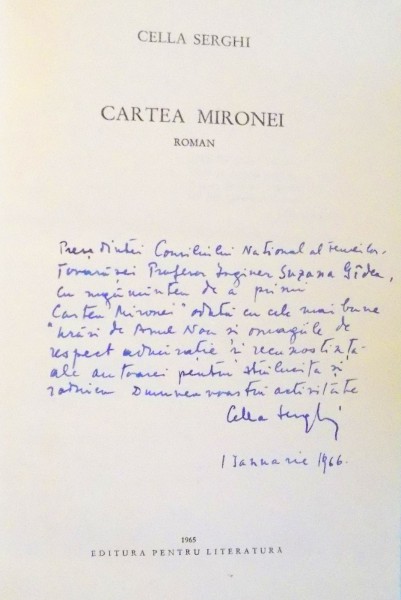 CELLA SERGHI
CARTEA MIRONEI
ROMAN
Președintei Consiliului Național al Femeilor,
Tovarășei Profesor Inginer Suzana Gîdea,
cu rugămintea de a primi
"Cartea Mironei" odată cu cele mai bune
urări de Anul Nou și omagiile de
respect admirație și recunoștință
ale autoarei pentru strălucita și
rodnica Dumneavoastră activitate
Cella Serghi
1 Ianuarie 1966.
1965
EDITURA PENTRU LITERATURĂ